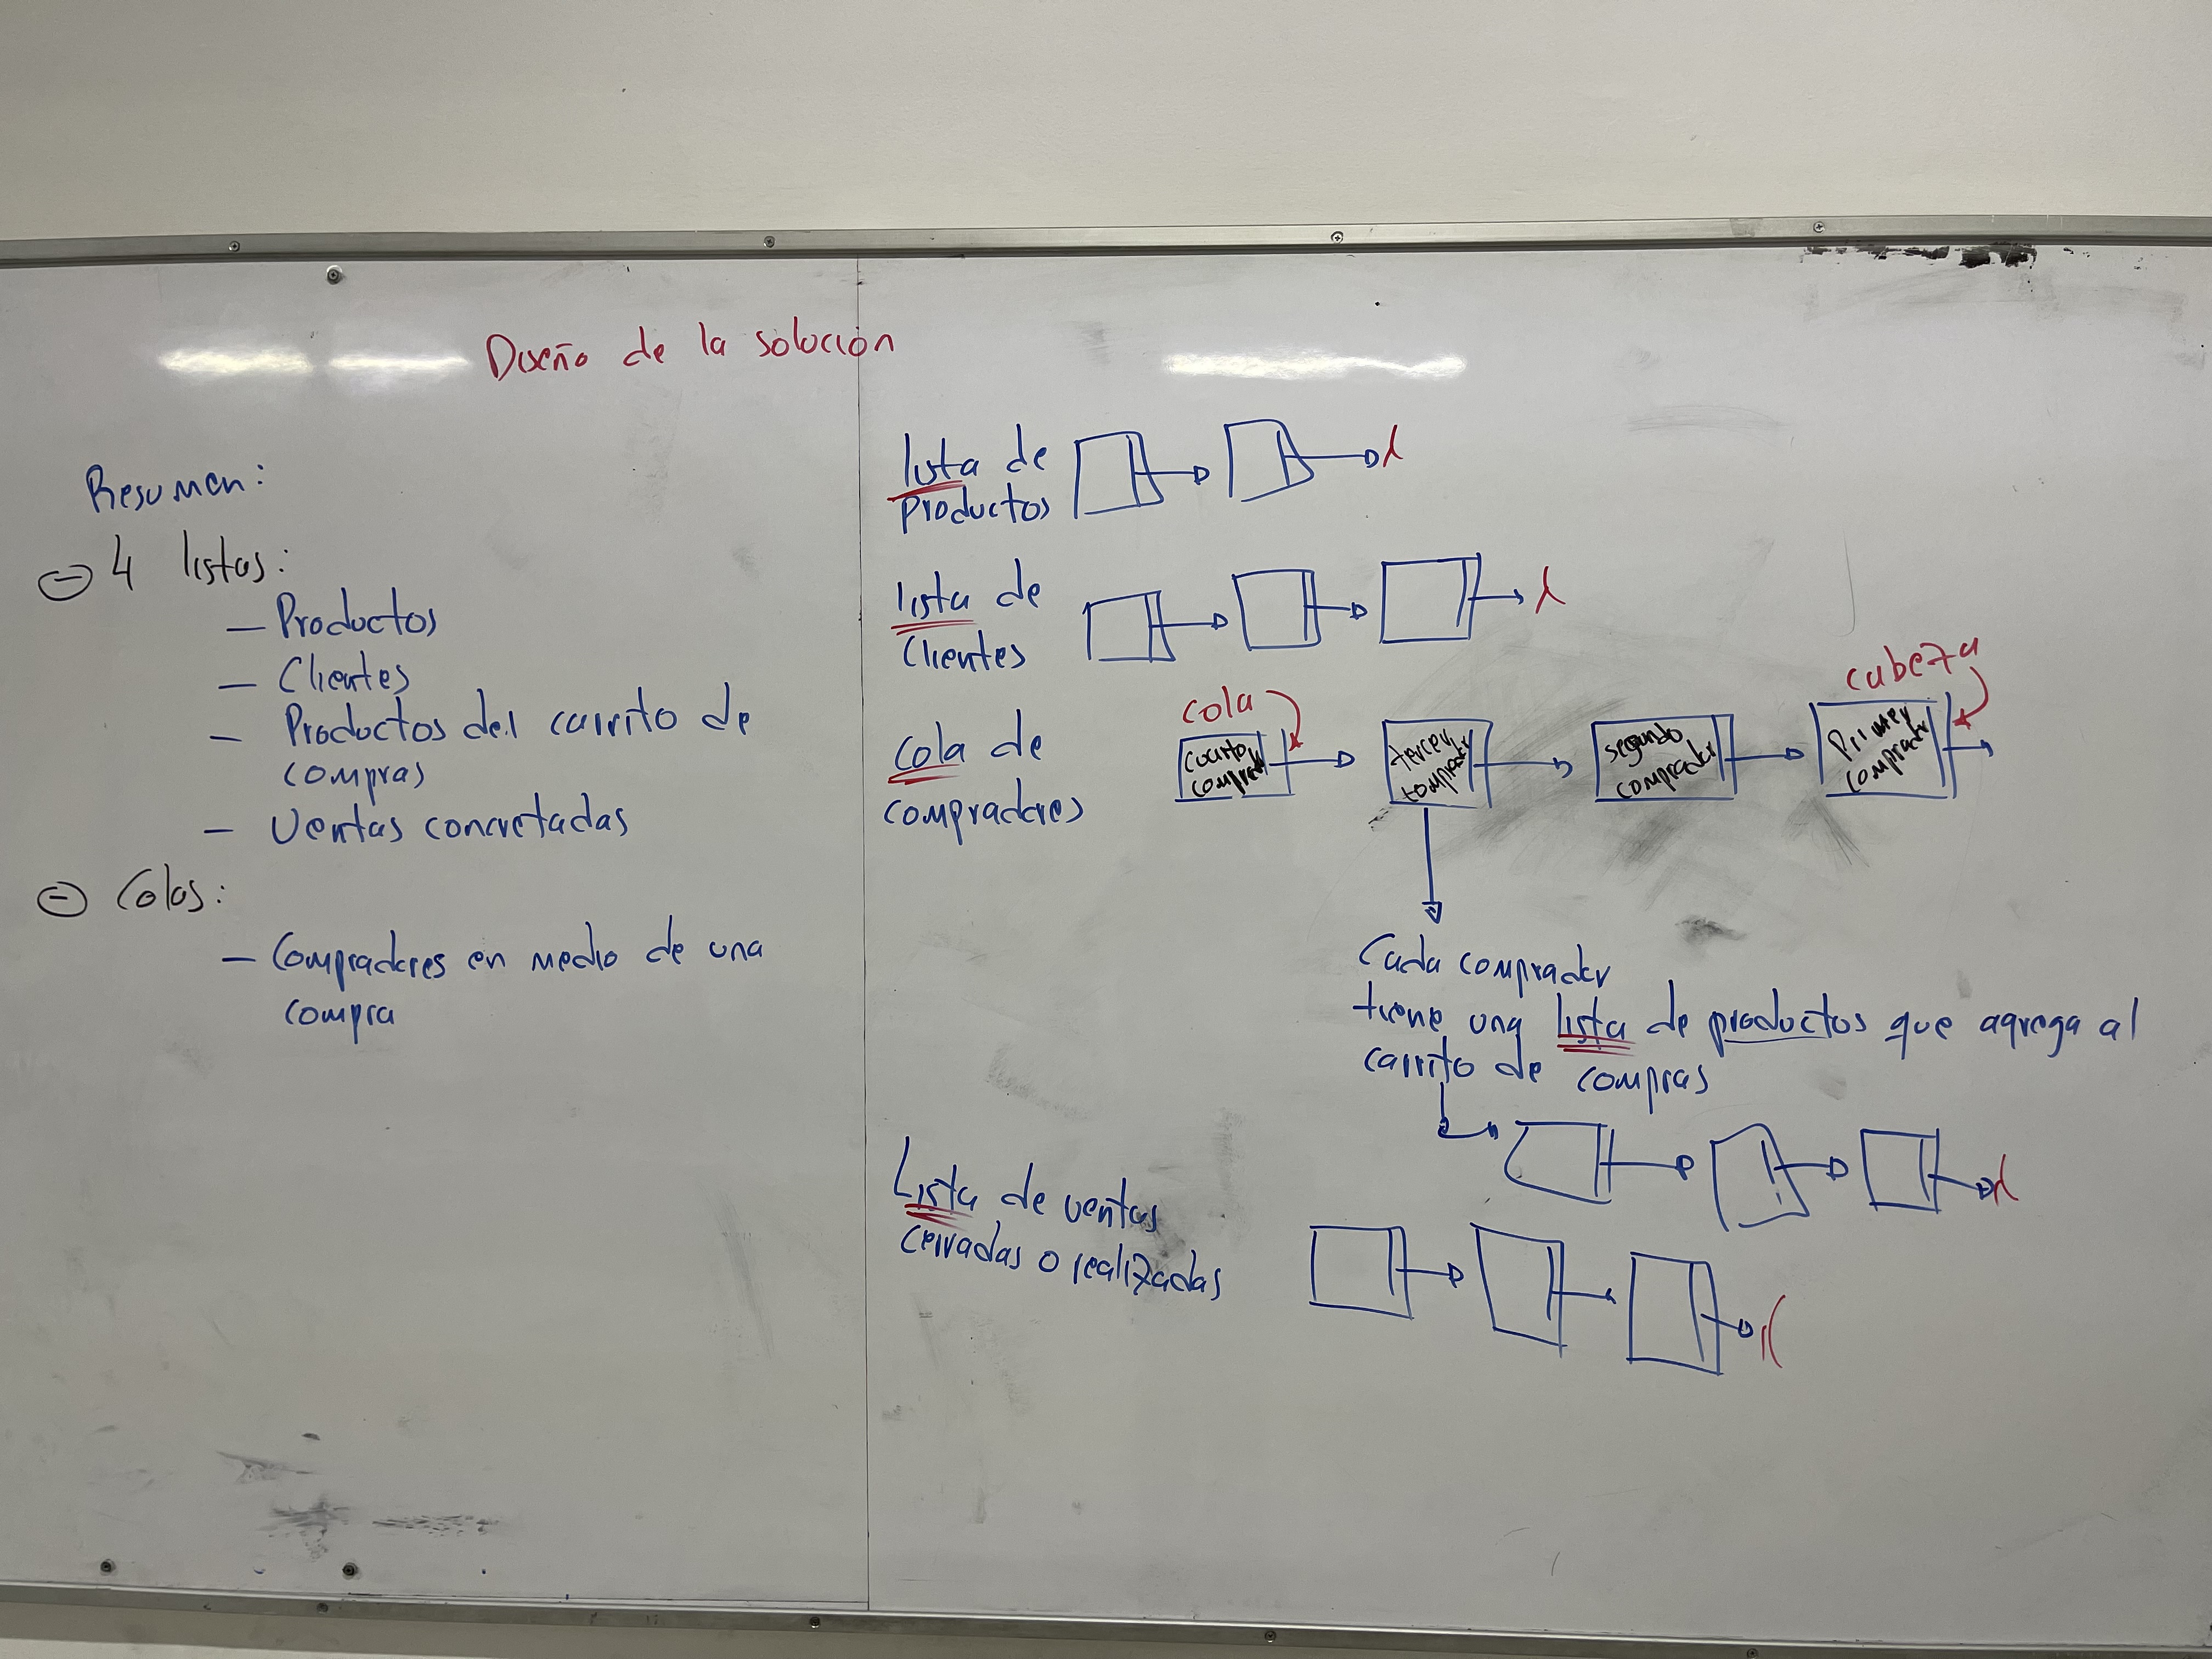 Diseño de la solución
Resumen:
4 listas:
- Productos
- Clientes
- Productos del carrito de
compras
- Ventas concretadas
Colas:
- Compradores en medio de una
compra
lista de
Productos
λ
lista de
Clientes
λ
cola de
compradores
cola
cabeza
cuarto
comprador
tercer
comprador
segundo
comprador
Primer
comprador
Cada comprador
tiene una lista de productos que agrega al
carrito de compras
λ
Lista de ventas
cerradas o realizadas
λ